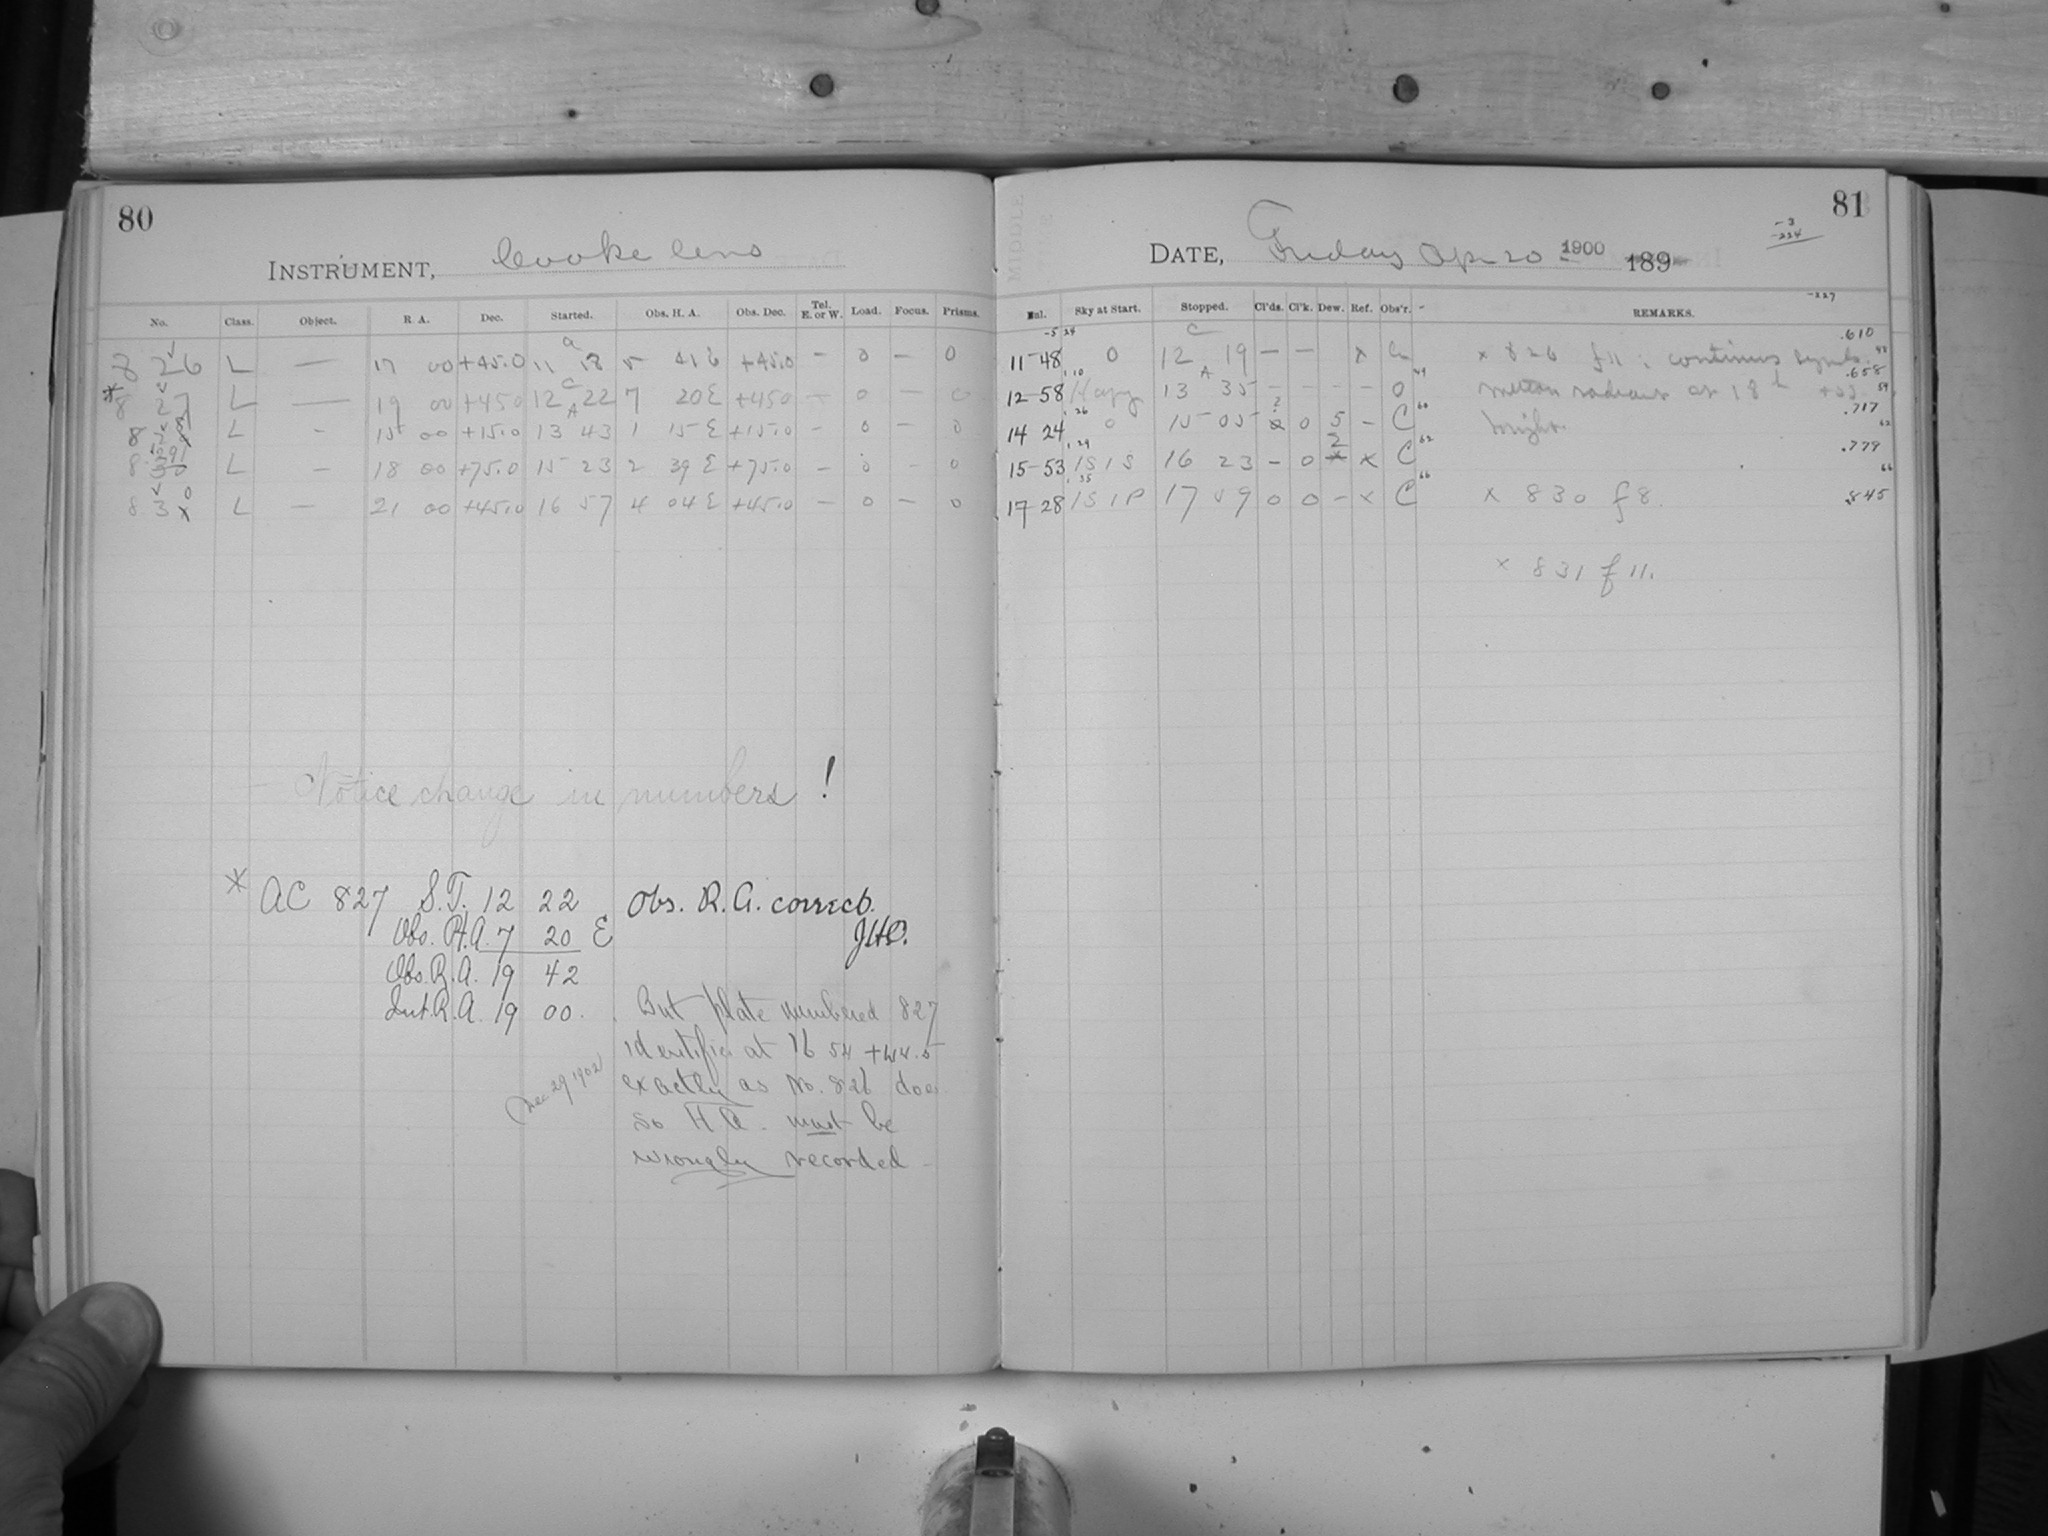 80
INSTRUMENT, Cooke lens
No. Class. Object. R. A. Dec. Started. Obs. H. A. Obs. Dec. Tel. E. or W. Load. Focus. Prisms.
8 26 L — 17 00 +45.0 11 18 5 41 E +45.0 — 0 — 0
* 8 27 L — 19 00 +45.0 12 22 7 20 E +45.0 — 0 — 0
8 L - 15 00 +15.0 13 43 1 15 E +15.0 - 0 - 0
8 L - 18 00 +75.0 15 23 2 39 E +75.0 - 0 - 0
8 3 L — 21 00 +45.0 16 57 4 04 E +45.0 — 0 — 0
Notice change in numbers !
* AC 827 S.T. 12 22 Obs. R.A. correct.
Obs. H.A. 7 20 E
Obs. R.A. 19 42
Int. R.A. 19 00.
But plate numbered 827
identifies at 16 54 +44.5
exactly as No. 826 does
so H A. must be
wrongly recorded
Dec 29 1902
81
DATE, Friday Ap. 20 1900 189
-3
-224
-227
Sky at Start. Stopped. Cl'ds. Cl'k. Dew. Ref. Obs'r. REMARKS.
11-48 0 12 19 — — x x 826 f11; continuous .610
12-58 Hazy 13 35 - - - - 0 radiant at 18 h .658
14 24 0 15 05 x 0 5 - C bright. .717
15-53 1S 1S 16 23 - 0 x C .779
17-28 1S 1P 17 59 0 0 - x C x 830 f8. .845
x 831 f11.